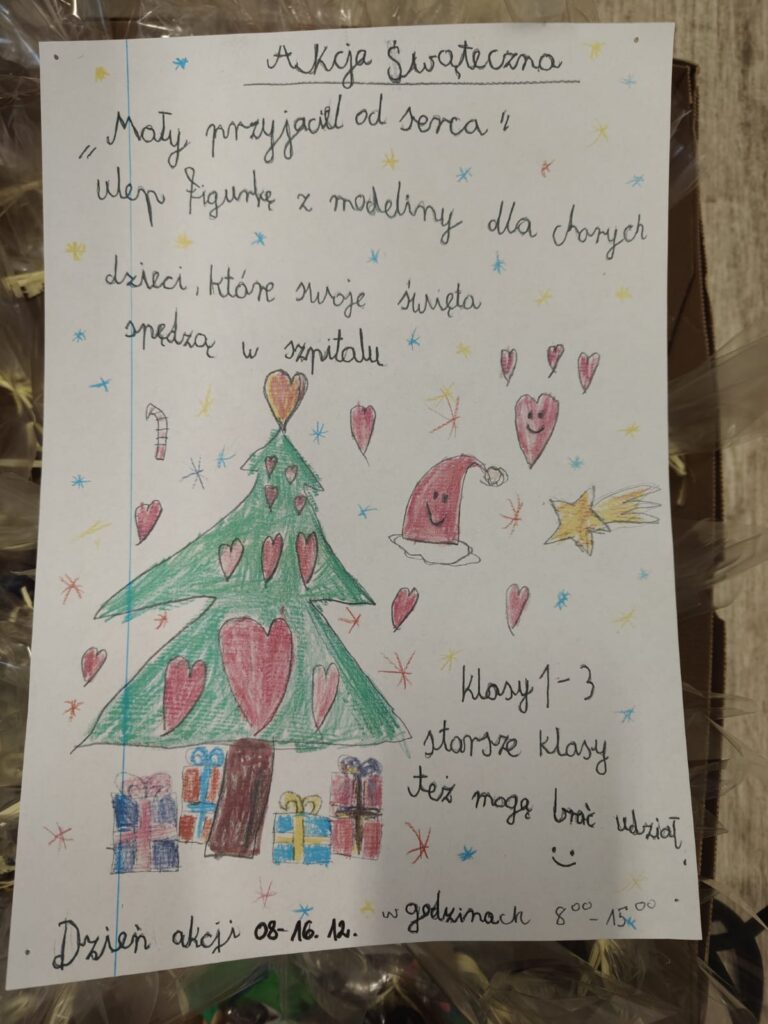 Akcja Świąteczna
„Mały przyjaciel od serca"
ulep figurkę z modeliny dla chorych
dzieci, które swoje święta
spędzą w szpitalu
klasy 1-3
starsze klasy
też mogą brać udział
Dzień akcji 08-16.12. w godzinach 8⁰⁰-15⁰⁰